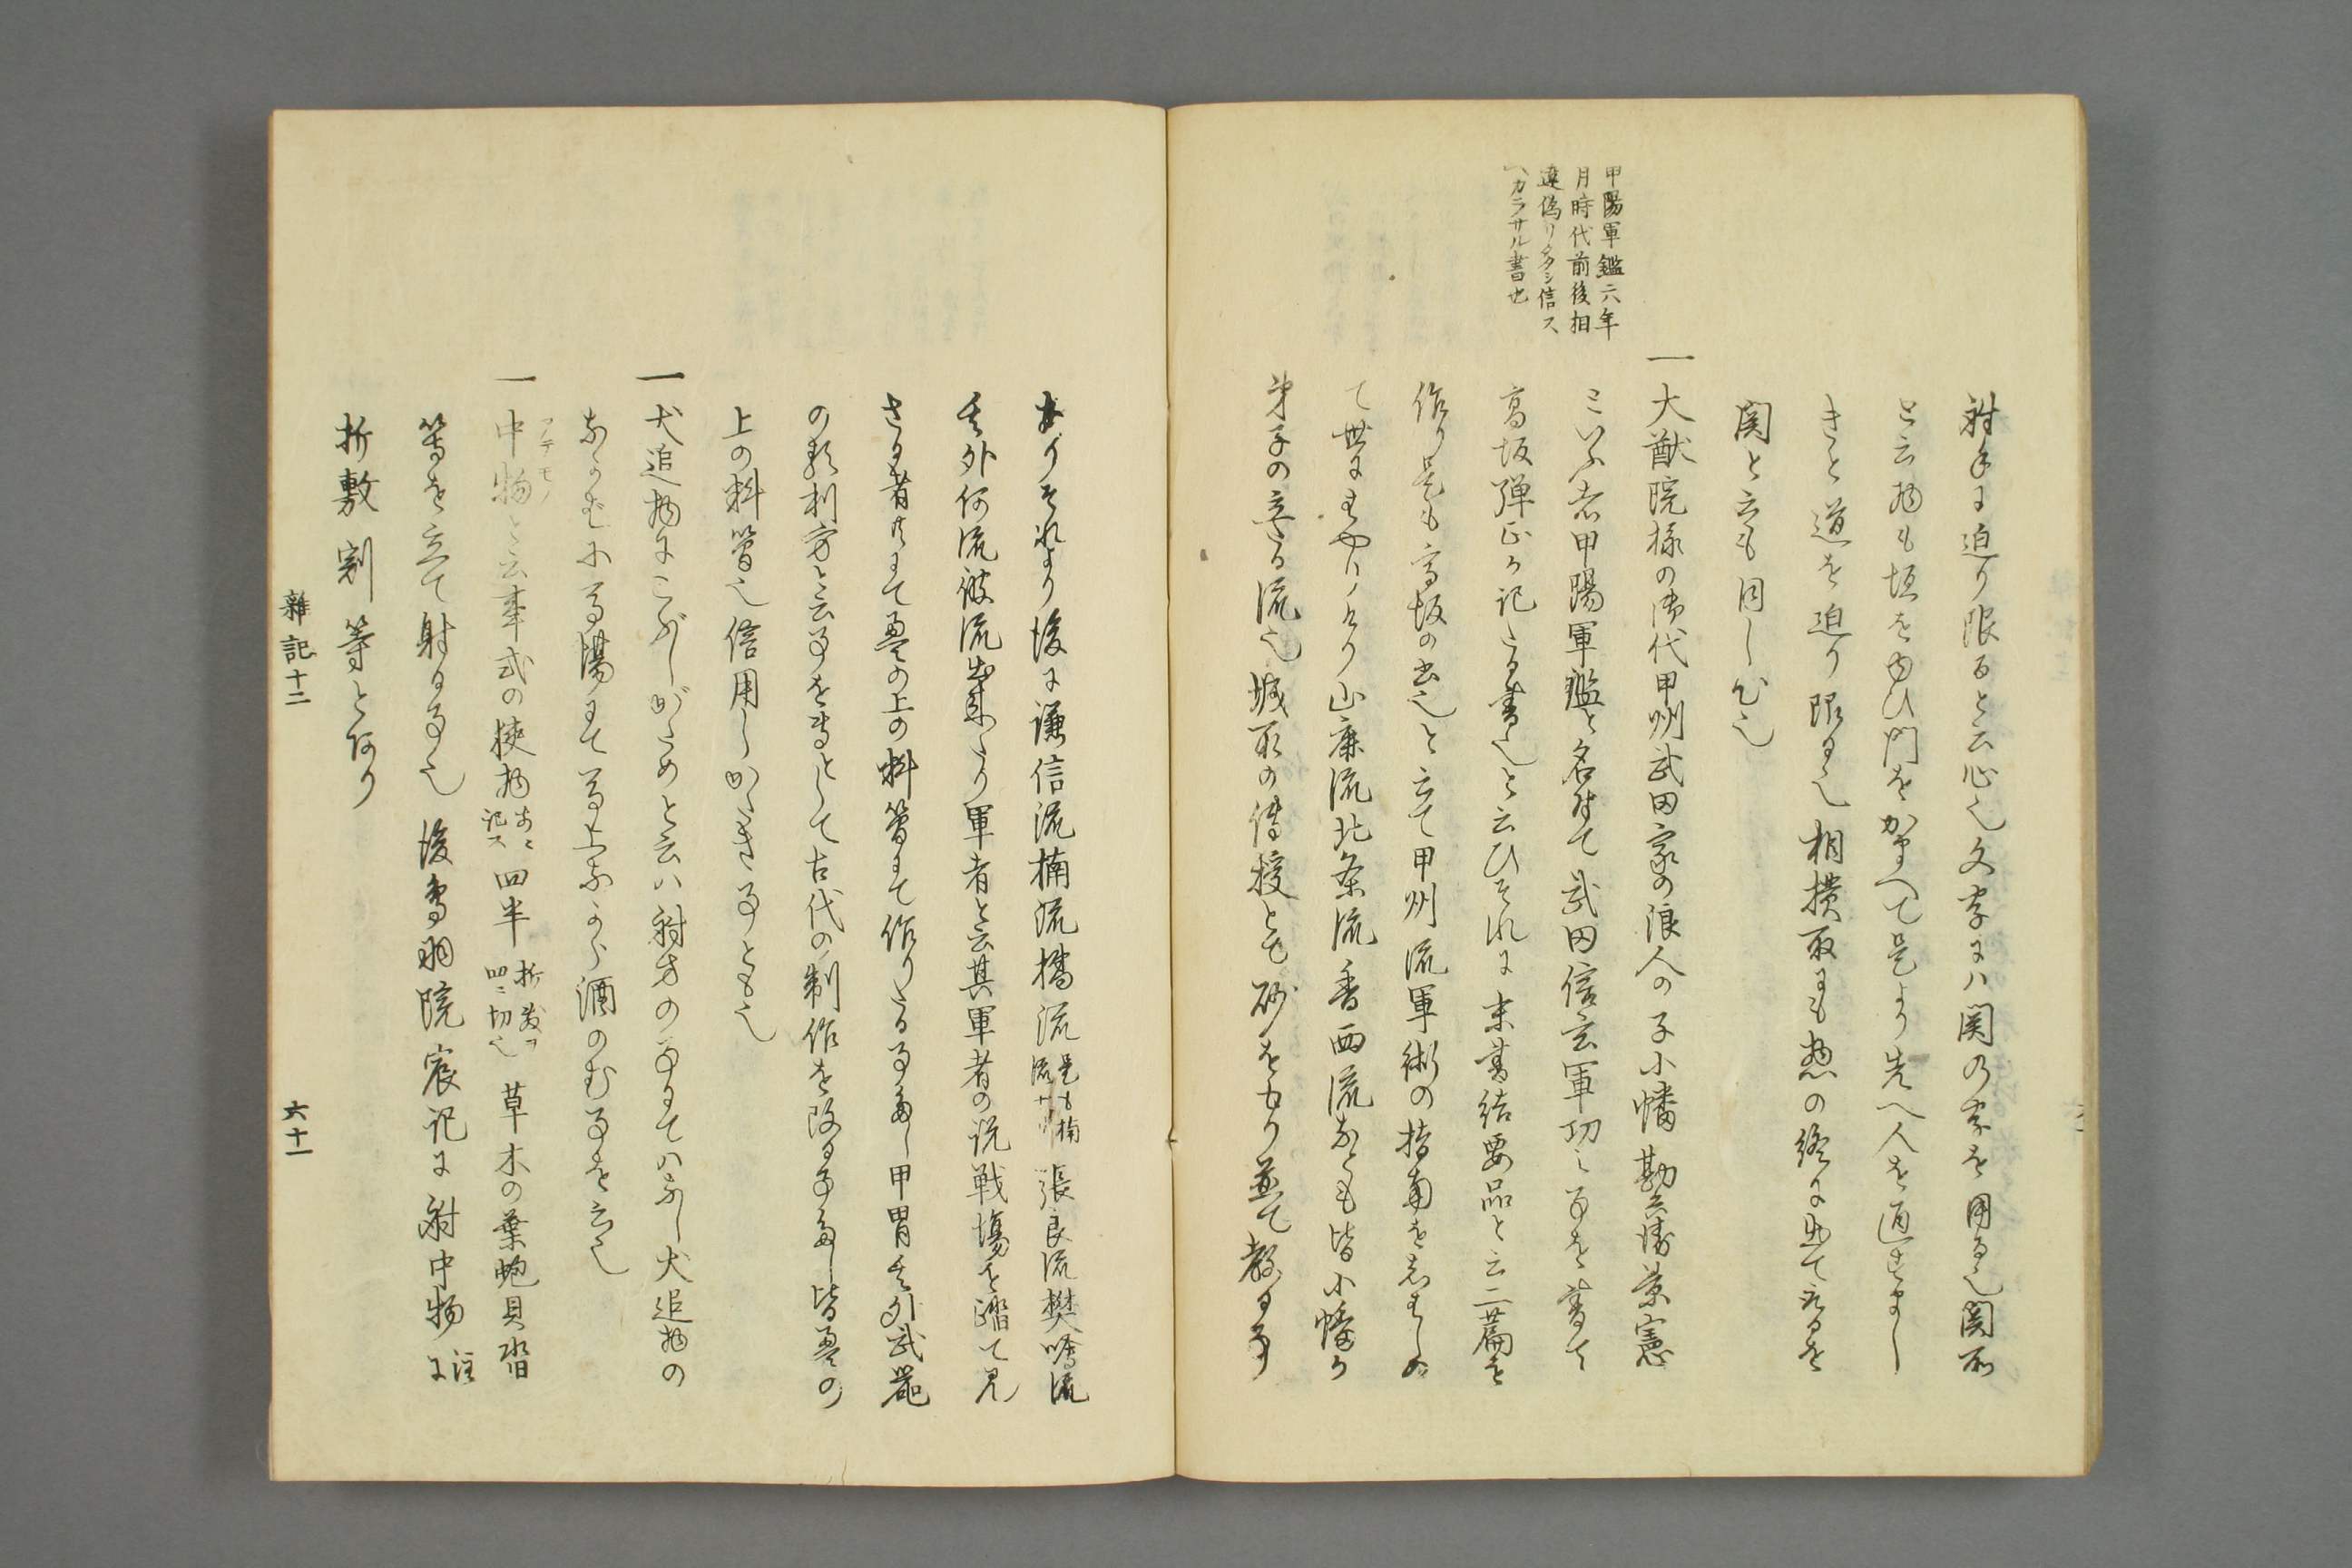 甲陽軍鑑六年
月時代前後相
違偽リ多シ信ス
ヘカラサル書也
射手に迫り限ると云心也文字にハ関の字を用る也関所
と云物も垣をゆひ門をかまへて是より先へ人を通すまし
きと道を迫り限る也相撲取にも惣の終に出て取るを
関と云も同し心也
一大猷院様の御代甲州武田家の浪人の子小幡勘兵衛景憲
といふ者甲陽軍鑑と名付て武田信玄軍功之事を書て
高坂弾正か記したる書也と云ひそれに末書結要品と云二篇を
作り是も高坂の書也と云て甲州流軍術の指南をしはしめ
て世にもてはやりけり山鹿流北条流香西流なとも皆小幡か
弟子の立たる流也城取の傳授とも砂をもり並て教る事
ありそれより後に謙信流楠流橘流是も楠流ナリ張良流樊噲流
其外何流彼流出来たり軍者と云其軍者の説戦場を踏て見
さる者共にて畳の上の料簡にて作りたる事多し甲冑其外武器
の類利方と云事を専として古代の制作を改る事多し皆畳の
上の料簡也信用しかたき事とも也
一犬追物にこぶしがためと云ハ射方の事にてハなし犬追物の
なくむに馬場にて馬上なから酒のむ事を云也
一中物アテモノと云事式の挾物前ニ記ス四半折敷ヲ四ニ切也草木の葉蚫貝沓
等を立て射る事也後鳥羽院宸記に射中物に注
折敷割等とあり
雑記十二
六十一